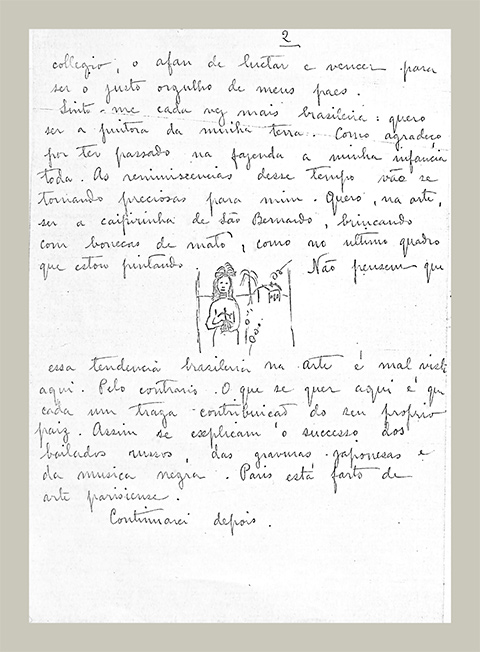 2
collegio, o afan de luctar e vencer para
ser o justo orgulho de meus paes.
Sinto-me cada vez mais brasileira: quero
ser a pintora da minha terra. Como agradeço
por ter passado na fazenda a minha infancia
toda. As reminiscencias desse tempo vão se
tornando preciosas para mim. Quero, na arte,
ser a caipirinha de São Bernardo, brincando
com bonecas de mato, como no ultimo quadro
que estou pintando. Não pensem que
essa tendencia brasileira na arte é mal vista
aqui. Pelo contrario. O que se quer aqui é que
cada um traga contribuição do seu proprio
paiz. Assim se explicam o successo dos
bailados russos, das gravuras japonesas e
da musica negra. Paris está farto de
arte parisiense.
Continuarei depois.